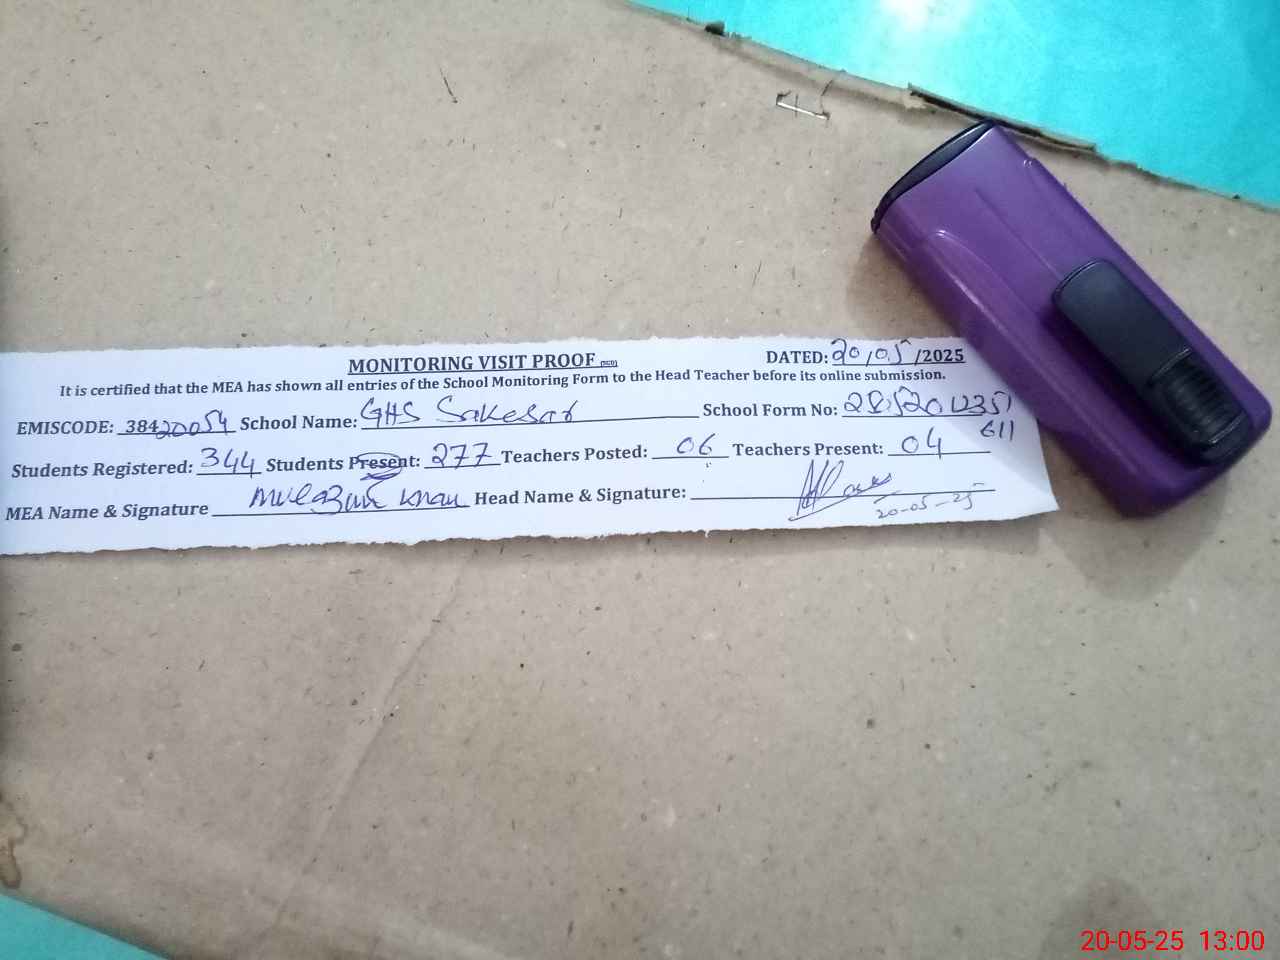 MONITORING VISIT PROOF DATED: 20/05/2025
It is certified that the MEA has shown all entries of the School Monitoring Form to the Head Teacher before its online submission.
EMISCODE: 38420054 School Name: GHS Sakesar School Form No:
611
Students Registered: 344 Students Present: 277 Teachers Posted: 06 Teachers Present: 04
MEA Name & Signature Khan Head Name & Signature:
20-05-25
20-05-25 13:00